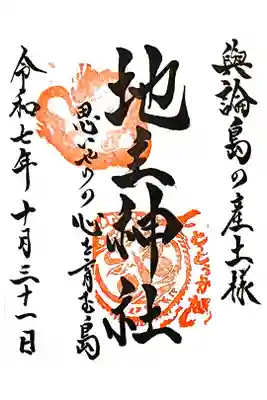 與論島の産土様
地主神社
思いやりの心を育む島
令和七年十月三十一日